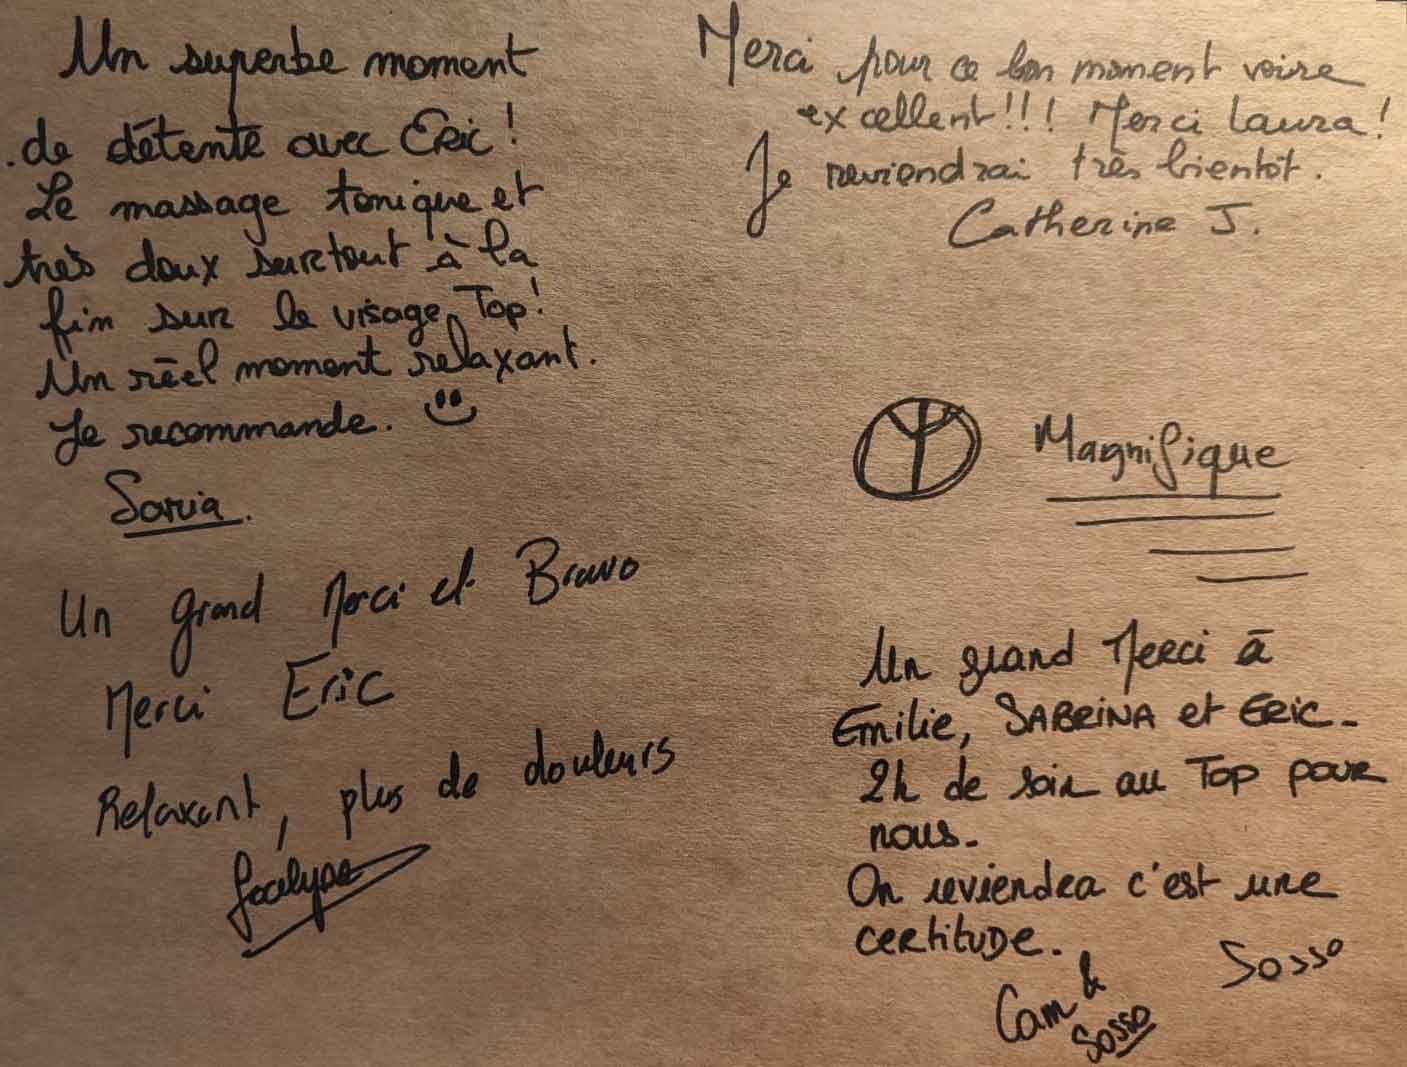 Un superbe moment
de détente avec Eric !
Le massage tonique et
très doux surtout à la
fin sur le visage Top !
Un réel moment relaxant.
Je recommande.
Soria.
Un grand Merci et Bravo
Merci Eric
Relaxant, plus de douleurs
Jocelyne
Merci pour ce bon moment voire
excellent !!! Merci Laura !
Je reviendrai très bientôt.
Catherine J.
Magnifique
Un grand Merci à
Emilie, SABRINA et ERIC -
2h de soin au Top pour
nous -
On reviendra c'est une
certitude.
Cam &
Sosso
Sosso